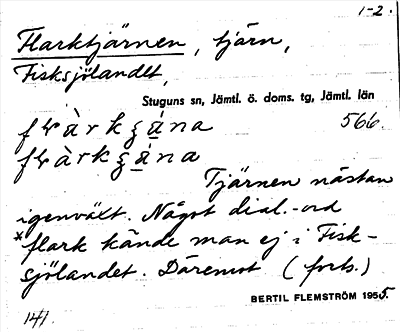 1-2.
Flarktjärnen, tjärn,
Fisksjölandet,
Stuguns sn, Jämtl. ö. doms. tg, Jämtl. län
566.
Tjärnen nästan
igenvält. Något dial.-ord
*flark kände man ej i Fisk-
sjölandet. Däremot (forts.)
BERTIL FLEMSTRÖM 1955.
141.